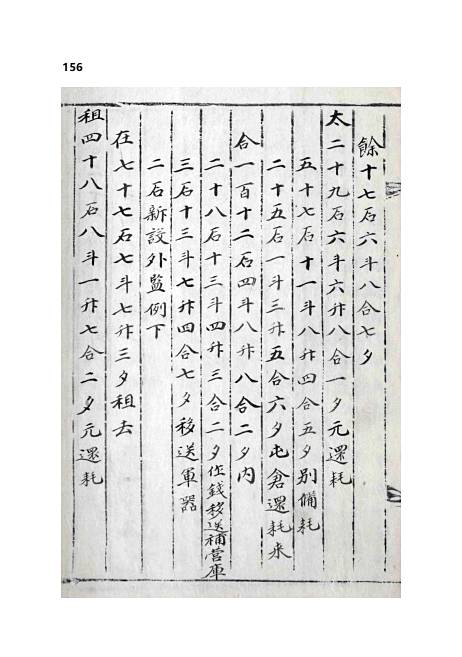 156
餘十七石六斗八合七夕
太二十九石六斗六升八合一夕元還耗
五十七石十一斗八升四合五夕別備耗
二十五石一斗三升五合六夕屯倉還耗来
合一百十二石四斗八升八合二夕內
二十八石十三斗四升三合二夕作錢移送補營庫
三石十三斗七升四合七夕移送軍器
二石新設外監例下
在七十七石七斗七升三夕租去
租四十八石八斗一升七合二夕元還耗